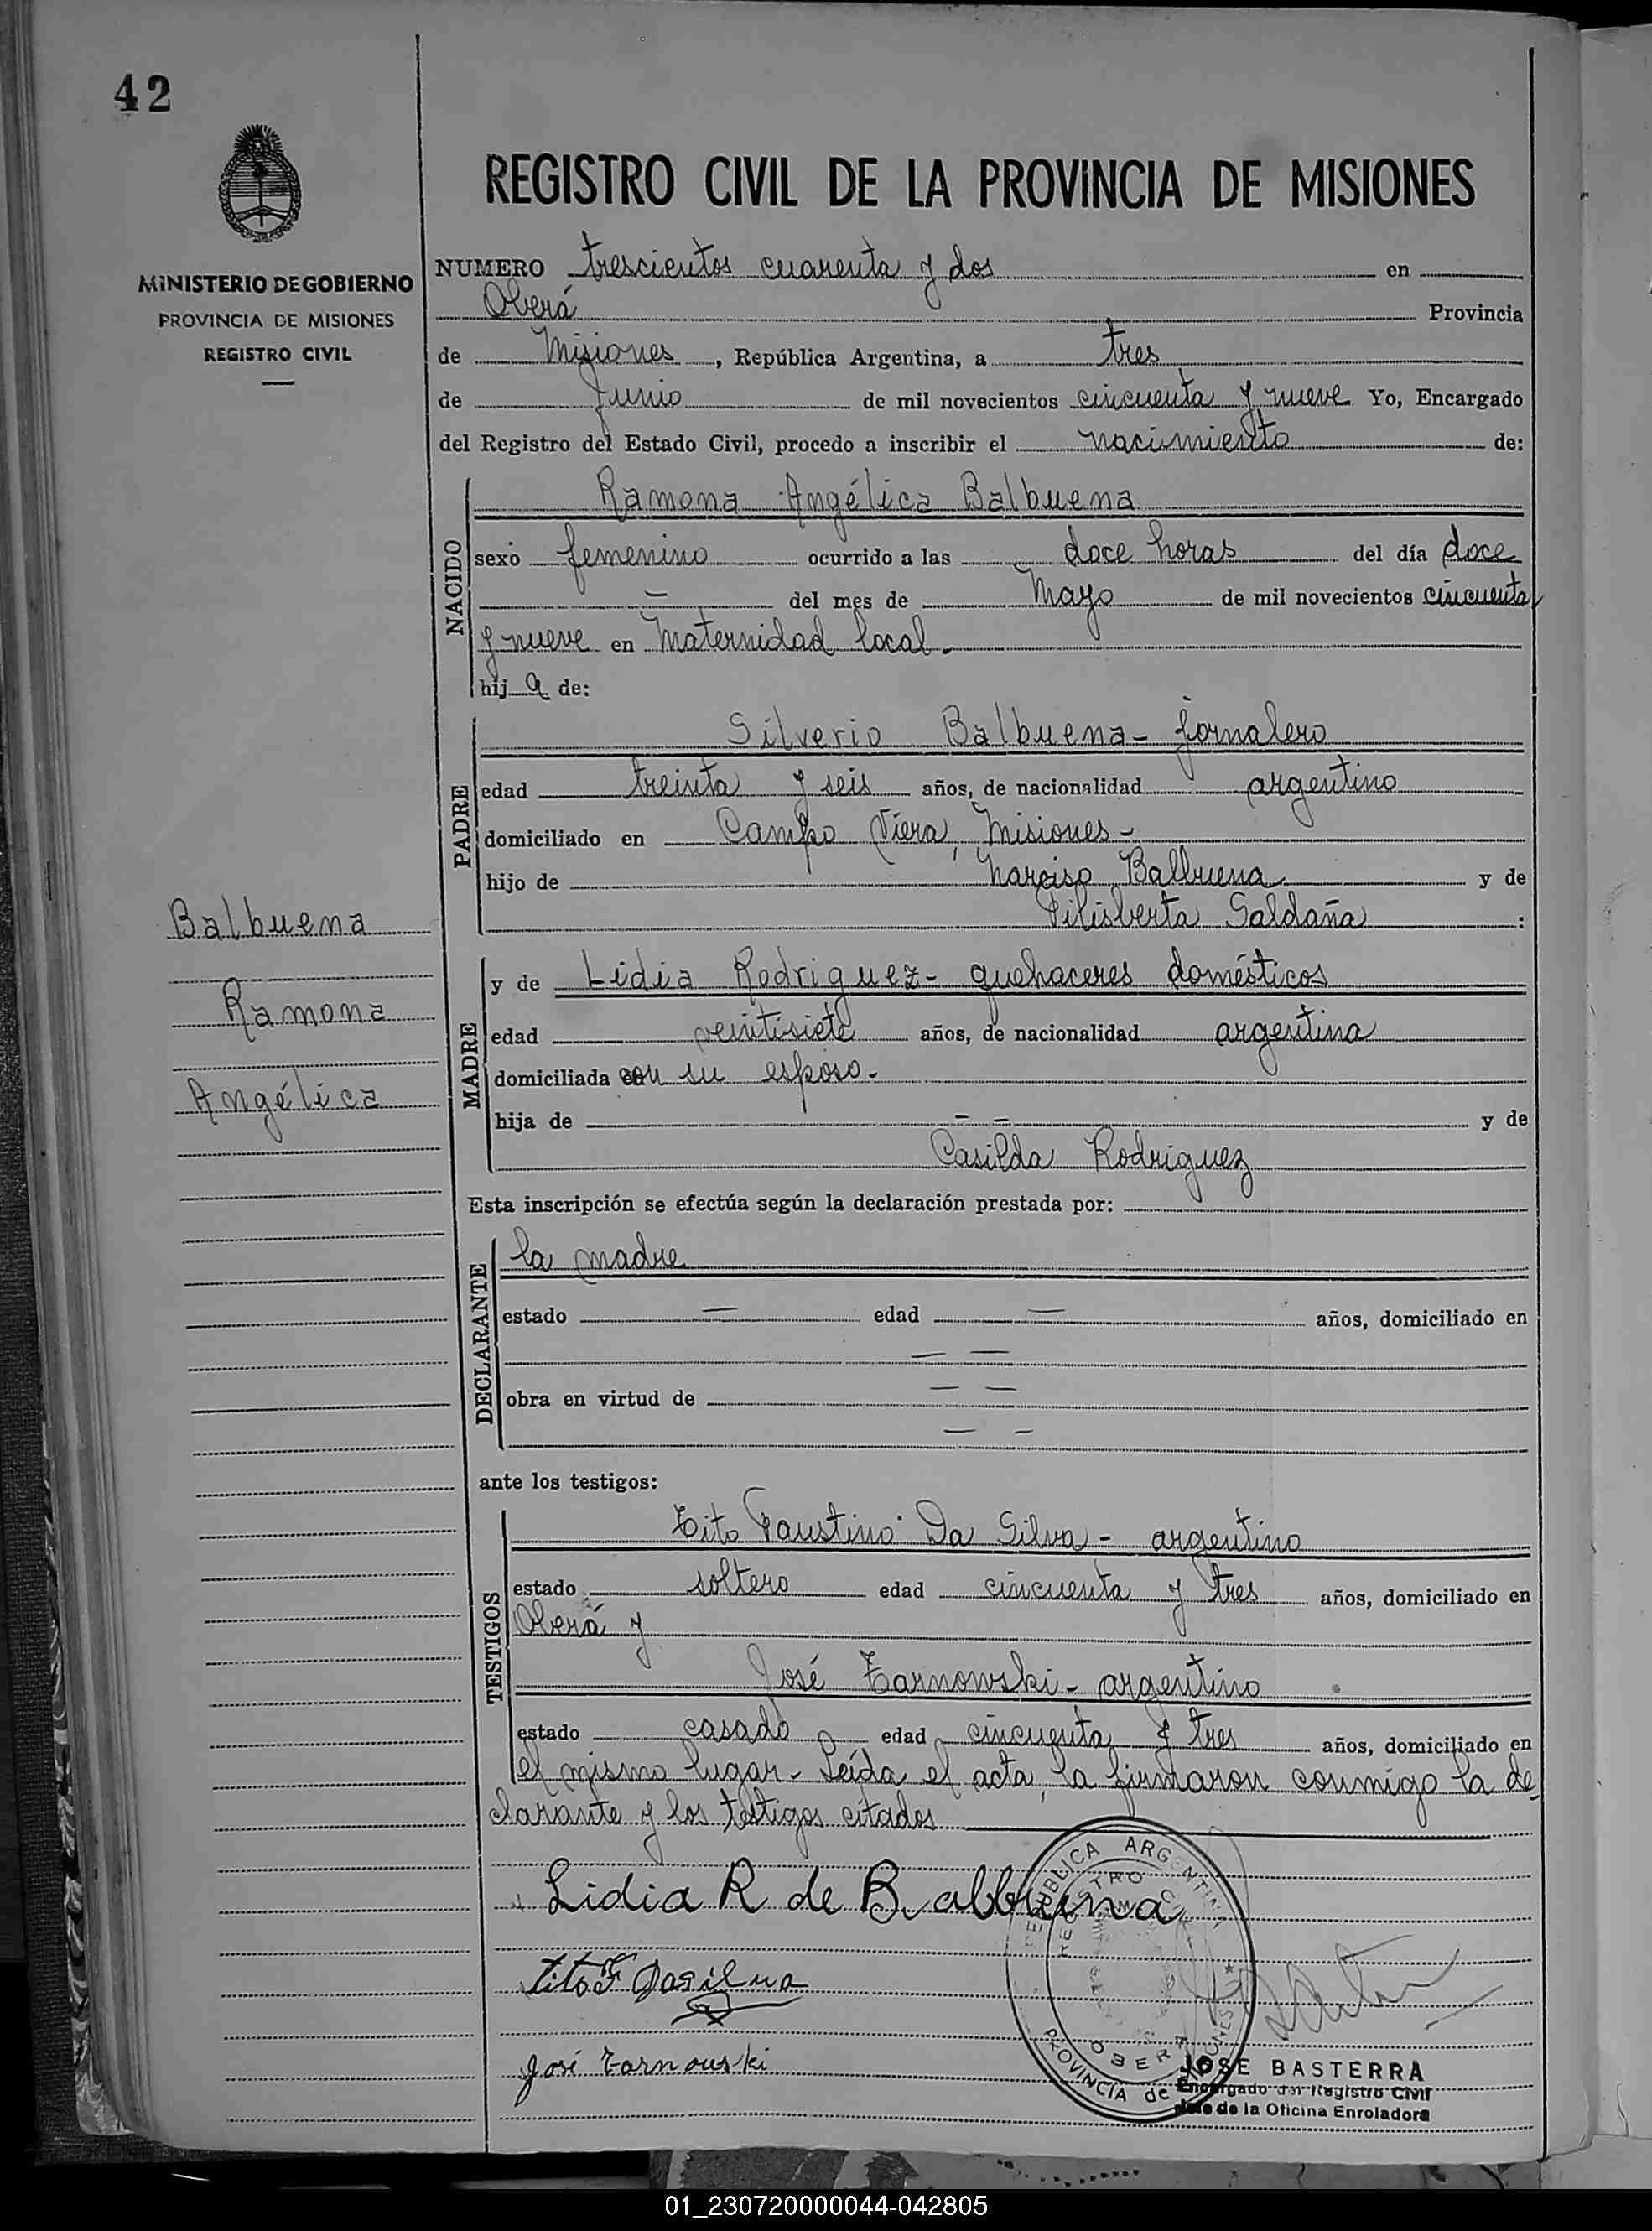 42
MINISTERIO DE GOBIERNO
PROVINCIA DE MISIONES
REGISTRO CIVIL
Balbuena
Ramona
Angélica
REGISTRO CIVIL DE LA PROVINCIA DE MISIONES
NUMERO trescientos cuarenta y dos en
Oberá Provincia
de Misiones, República Argentina, a tres
de Junio de mil novecientos cincuenta y nueve Yo, Encargado
del Registro del Estado Civil, procedo a inscribir el nacimiento de:
NACIDO
Ramona Angélica Balbuena
sexo femenino ocurrido a las doce horas del día doce
— del mes de Mayo de mil novecientos cincuenta
y nueve en Maternidad local.
hija de:
PADRE
Silverio Balbuena - jornalero
edad treinta y seis años, de nacionalidad argentino
domiciliado en Campo Viera, Misiones -
hijo de Narciso Balbuena y de
Filisberta Saldaña :
MADRE
y de Lidia Rodriguez - quehaceres domésticos
edad veintisiete años, de nacionalidad argentina
domiciliada con su esposo -
hija de — — y de
Casilda Rodriguez
Esta inscripción se efectúa según la declaración prestada por:
DECLARANTE
la madre
estado — edad — años, domiciliado en
— —
obra en virtud de — —
— —
ante los testigos:
TESTIGOS
Tito Faustino Da Silva - argentino
estado soltero edad cincuenta y tres años, domiciliado en
Oberá y
José Tarnowski - argentino
estado casado edad cincuenta y tres años, domiciliado en
el mismo lugar - Leída el acta, la firmaron conmigo la de
clarante y los testigos citados
Lidia R de Balbuena
Tito F Dasilva
José Tarnouski
REPUBLICA ARGENTINA
REGISTRO CIVIL
OBERA
PROVINCIA de MISIONES
JOSE BASTERRA
Encargado del Registro Civil
Jefe de la Oficina Enroladora
01_230720000044-042805